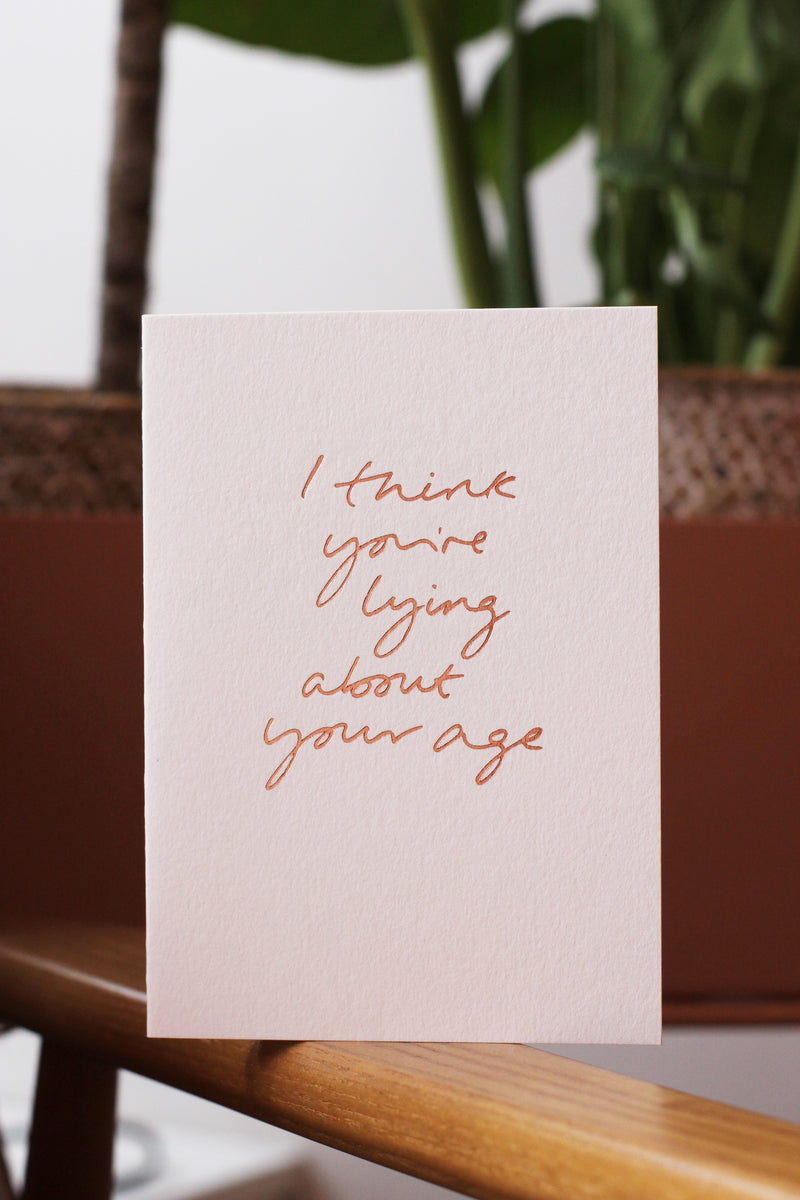 I think
you're
lying
about
your age